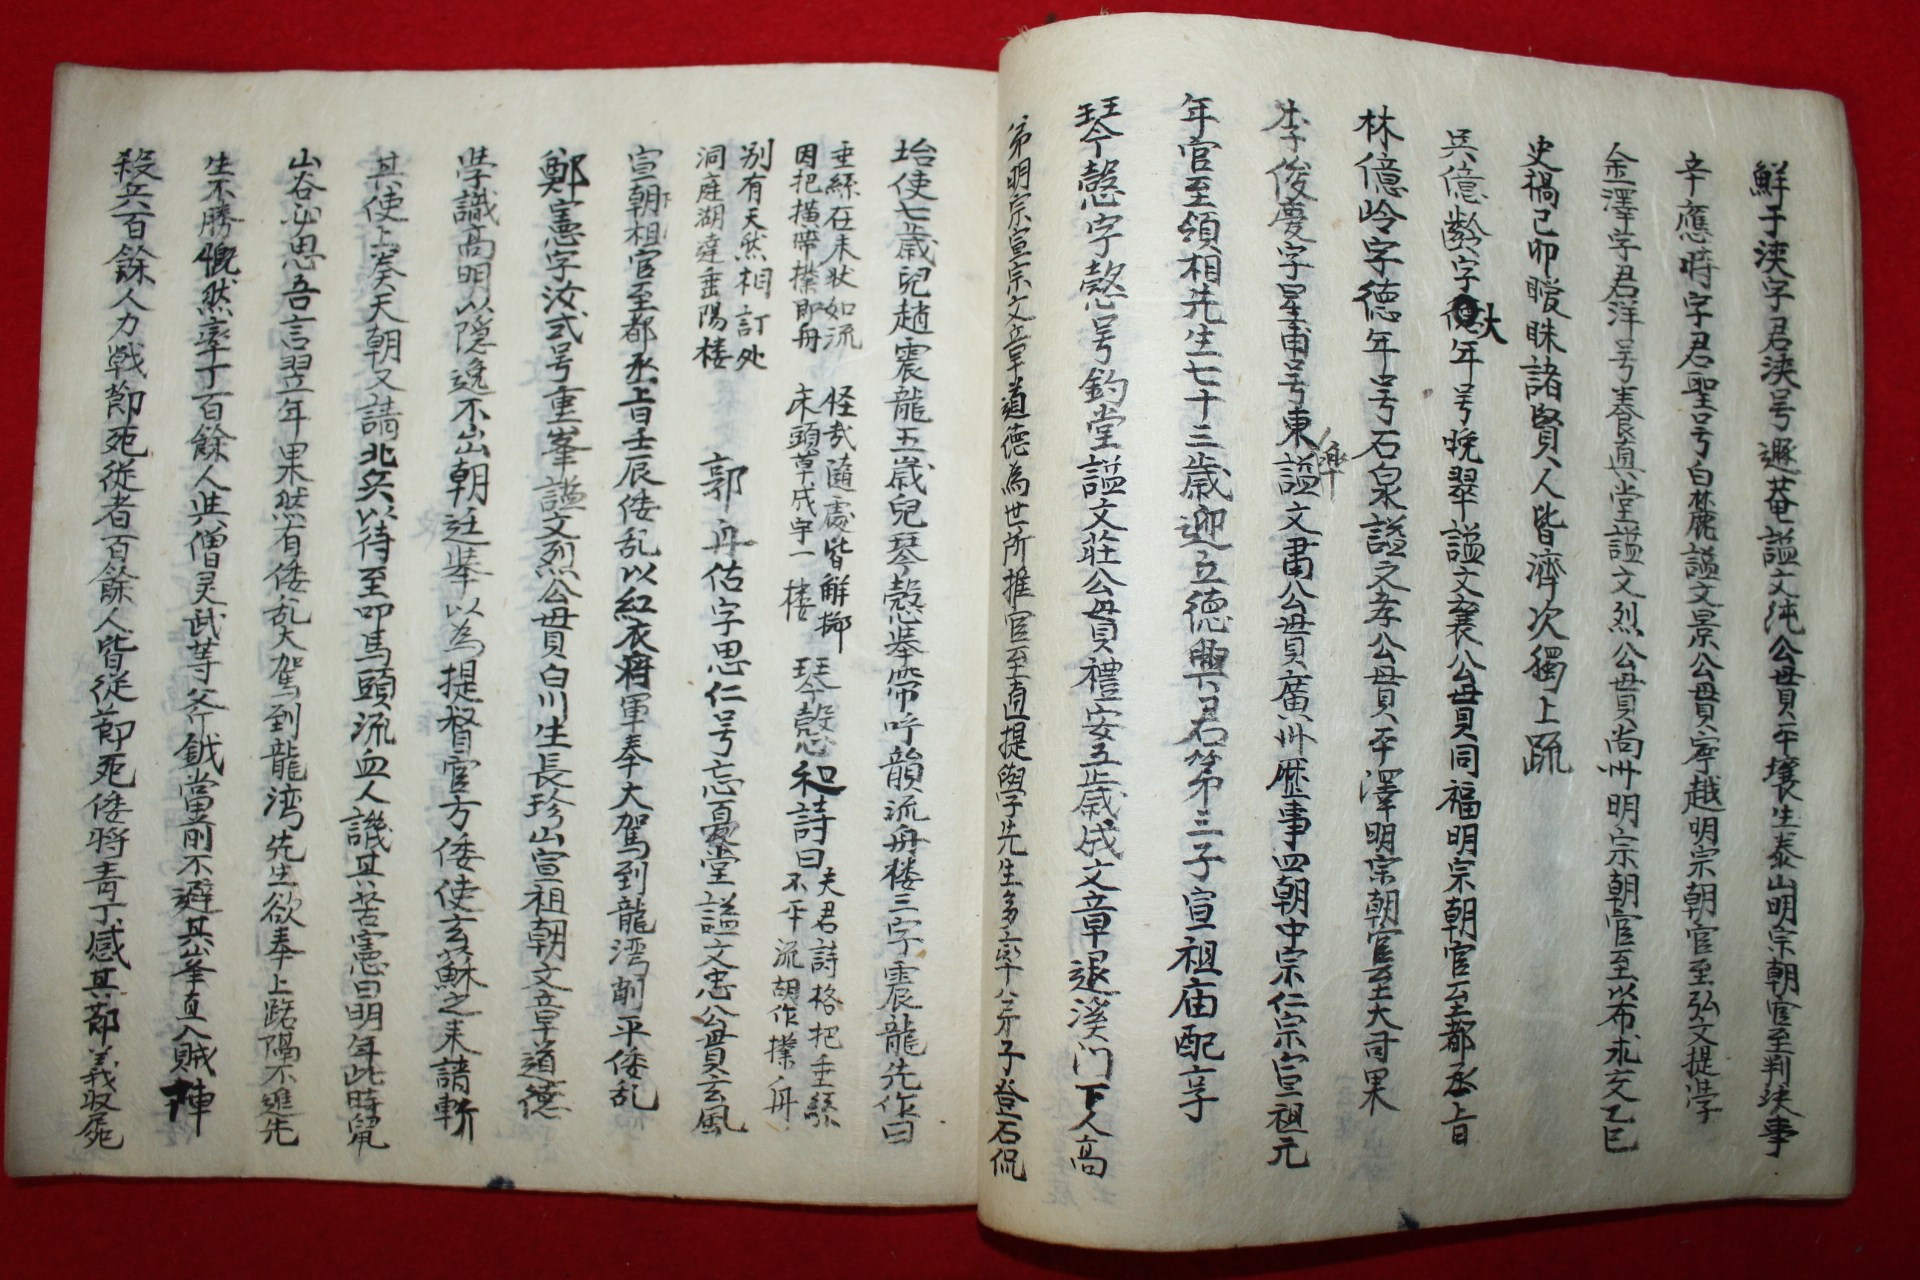 鮮于浹字君浹号遯菴諡文純公母貫平壤生泰山明宗朝官至判決事
辛應時字君聖号白麓諡文景公母貫寧越明宗朝官至弘文提学
金澤字君洋号養真堂諡文烈公母貫尚州明宗朝官至以布求文乙巳
史禍己卯曖昧諸賢人皆濟次獨上疏
吳億齡字大年号晚翠諡文襄公母貫同福明宗朝官至都丞旨
林億岭字德年号石泉諡文孝公母貫平澤明宗朝官至大司果
李俊慶字星甫号東皐諡文肅公母貫廣州歷事四朝中宗仁宗宣祖元
年官至領相先生七十三歲迎立德興君第三子宣祖庙配享
琴慤字慤号釣堂諡文莊公母貫禮安五歲成文章退溪门下人高
弟明宗宣宗文章道德為世所推官至直提學先生多卒十八弟子登石侃
坮使七歲兒趙震龍五歲兒琴慤举常呼韻流舟楼三字震龍先作曰
垂絲在末狀如流 怪哉隨處皆解挪
因把橫帶檥即舟 床頭草成宇一楼 琴慤和詩曰 夫君詩格把垂絲
不平流胡作檥舟
別有天然相訂处
洞庭湖達垂陽楼 郭再佑字思仁号忘憂堂諡文忠公母貫玄風
宣朝祖官至都丞旨壬辰倭乱以紅衣将軍奉大駕到龍湾削平倭乱
鄭憲字汝式号重峯諡文烈公母貫白川生長珍山宣祖朝文章道德
學識高明以隱逸不出朝廷举以為提督官方倭使玄蘇之来請斬
其使上奏天朝又請北兵以待至叩馬頭流血人譏其苦憲曰明年此時鼠
山谷必思吾言翌年果然有倭乱大駕到龍湾先生欲奉上路隔不進先
生不勝慨然率丁百餘人與僧灵武等斧鉞當前不避其峯直入賊陣
殺兵百餘人力戰節死従者百餘人皆従節死倭将青丁感其節義收屍